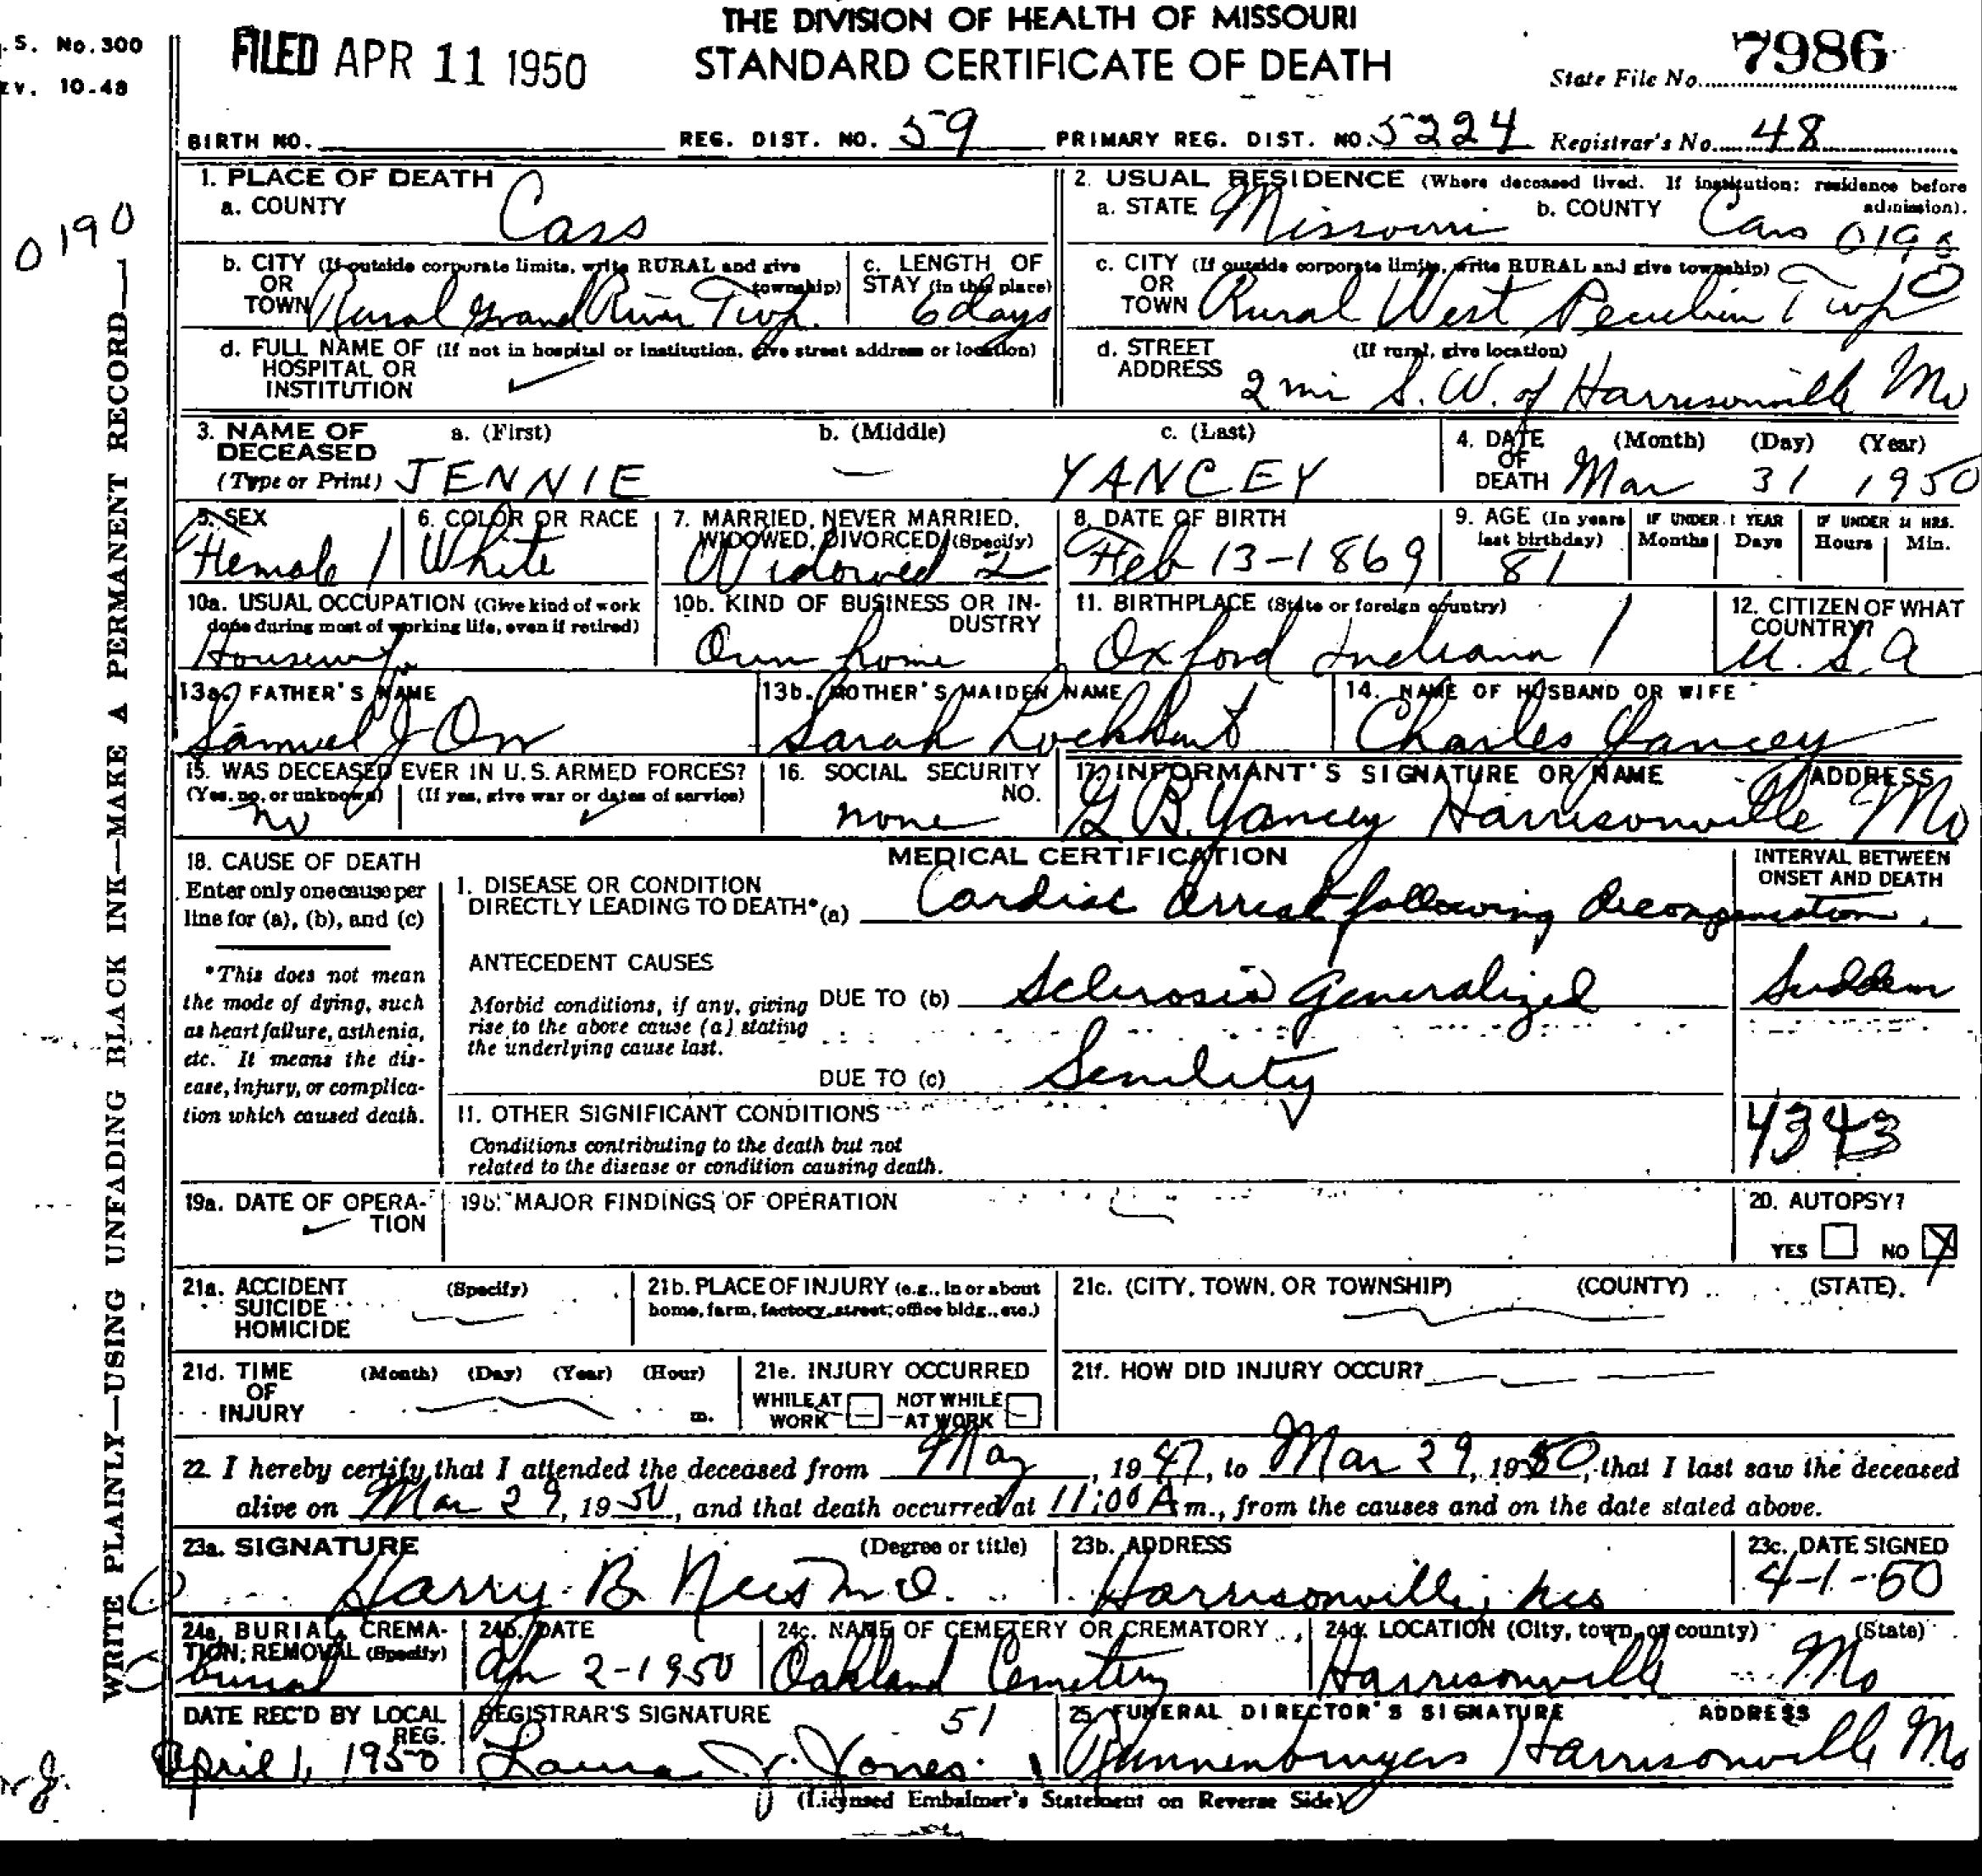 THE DIVISION OF HEALTH OF MISSOURI
.S. No.300
EV. 10-48
FILED APR 11 1950
STANDARD CERTIFICATE OF DEATH
State File No. 7986
BIRTH NO. REG. DIST. NO. 59 PRIMARY REG. DIST. NO. 5224 Registrar's No. 48
0190
WRITE PLAINLY—USING UNFADING BLACK INK—MAKE A PERMANENT RECORD—
1. PLACE OF DEATH
a. COUNTY Cass
2. USUAL RESIDENCE (Where deceased lived. If institution: residence before admission).
a. STATE Missouri b. COUNTY Cass
b. CITY (If outside corporate limits, write RURAL and give township)
OR
TOWN Rural Grand River Twp.
c. LENGTH OF
STAY (in this place)
6 days
c. CITY (If outside corporate limits, write RURAL and give township)
OR
TOWN Rural West Twp
d. FULL NAME OF (If not in hospital or institution, give street address or location)
HOSPITAL OR
INSTITUTION
d. STREET (If rural, give location)
ADDRESS 2 mi S.W. of Harrisonville Mo
3. NAME OF
DECEASED
(Type or Print)
a. (First) b. (Middle) c. (Last)
JENNIE — YANCEY
4. DATE
OF
DEATH
(Month) (Day) (Year)
Mar 31 1950
5. SEX
Female 1
6. COLOR OR RACE
White
7. MARRIED, NEVER MARRIED,
WIDOWED, DIVORCED (Specify)
Widowed 2
8. DATE OF BIRTH
Feb 13-1869
9. AGE (In years
last birthday)
81
IF UNDER 1 YEAR
Months Days
IF UNDER 24 HRS.
Hours Min.
10a. USUAL OCCUPATION (Give kind of work
done during most of working life, even if retired)
Housewife
10b. KIND OF BUSINESS OR IN-
DUSTRY
Own home
11. BIRTHPLACE (State or foreign country)
Oxford Indiana /
12. CITIZEN OF WHAT
COUNTRY?
U.S.A
13a. FATHER'S NAME
Samuel J Orr
13b. MOTHER'S MAIDEN NAME
Sarah Lockhart
14. NAME OF HUSBAND OR WIFE
Charles Yancey
15. WAS DECEASED EVER IN U.S. ARMED FORCES?
(Yes, no, or unknown) (If yes, give war or dates of service)
no
16. SOCIAL SECURITY
NO.
none
17. INFORMANT'S SIGNATURE OR NAME ADDRESS
G B. Yancey Harrisonville Mo
18. CAUSE OF DEATH
Enter only one cause per
line for (a), (b), and (c)
*This does not mean
the mode of dying, such
as heart failure, asthenia,
etc. It means the dis-
ease, injury, or complica-
tion which caused death.
MEDICAL CERTIFICATION
INTERVAL BETWEEN
ONSET AND DEATH
I. DISEASE OR CONDITION
DIRECTLY LEADING TO DEATH* (a) Cardiac Arrest following decompensation.
ANTECEDENT CAUSES
Morbid conditions, if any, giving
rise to the above cause (a) stating
the underlying cause last.
DUE TO (b) Sclerosis Generalized Sudden
DUE TO (c) Senility
II. OTHER SIGNIFICANT CONDITIONS
Conditions contributing to the death but not
related to the disease or condition causing death.
4343
19a. DATE OF OPERA-
TION
19b. MAJOR FINDINGS OF OPERATION
20. AUTOPSY?
YES NO X
21a. ACCIDENT (Specify)
SUICIDE
HOMICIDE
21b. PLACE OF INJURY (e.g., in or about
home, farm, factory, street, office bldg., etc.)
21c. (CITY, TOWN, OR TOWNSHIP) (COUNTY) (STATE)
21d. TIME (Month) (Day) (Year) (Hour)
OF
INJURY m.
21e. INJURY OCCURRED
WHILE AT NOT WHILE
WORK AT WORK
21f. HOW DID INJURY OCCUR?
22. I hereby certify that I attended the deceased from May, 1947, to Mar 29, 1950, that I last saw the deceased
alive on Mar 29, 1950, and that death occurred at 11:00 A m., from the causes and on the date stated above.
23a. SIGNATURE (Degree or title)
Harry B M.D.
23b. ADDRESS
Harrisonville,
23c. DATE SIGNED
4-1-50
24a. BURIAL, CREMA-
TION, REMOVAL (Specify)
burial
24b. DATE
Apr 2-1950
24c. NAME OF CEMETERY OR CREMATORY
Oakland Cemetery
24d. LOCATION (City, town, or county) (State)
Harrisonville Mo
DATE REC'D BY LOCAL
REG.
April 1, 1950
REGISTRAR'S SIGNATURE 51
Laura J. Jones
25. FUNERAL DIRECTOR'S SIGNATURE ADDRESS
Runnenburgers Harrisonville Mo
(Licensed Embalmer's Statement on Reverse Side)